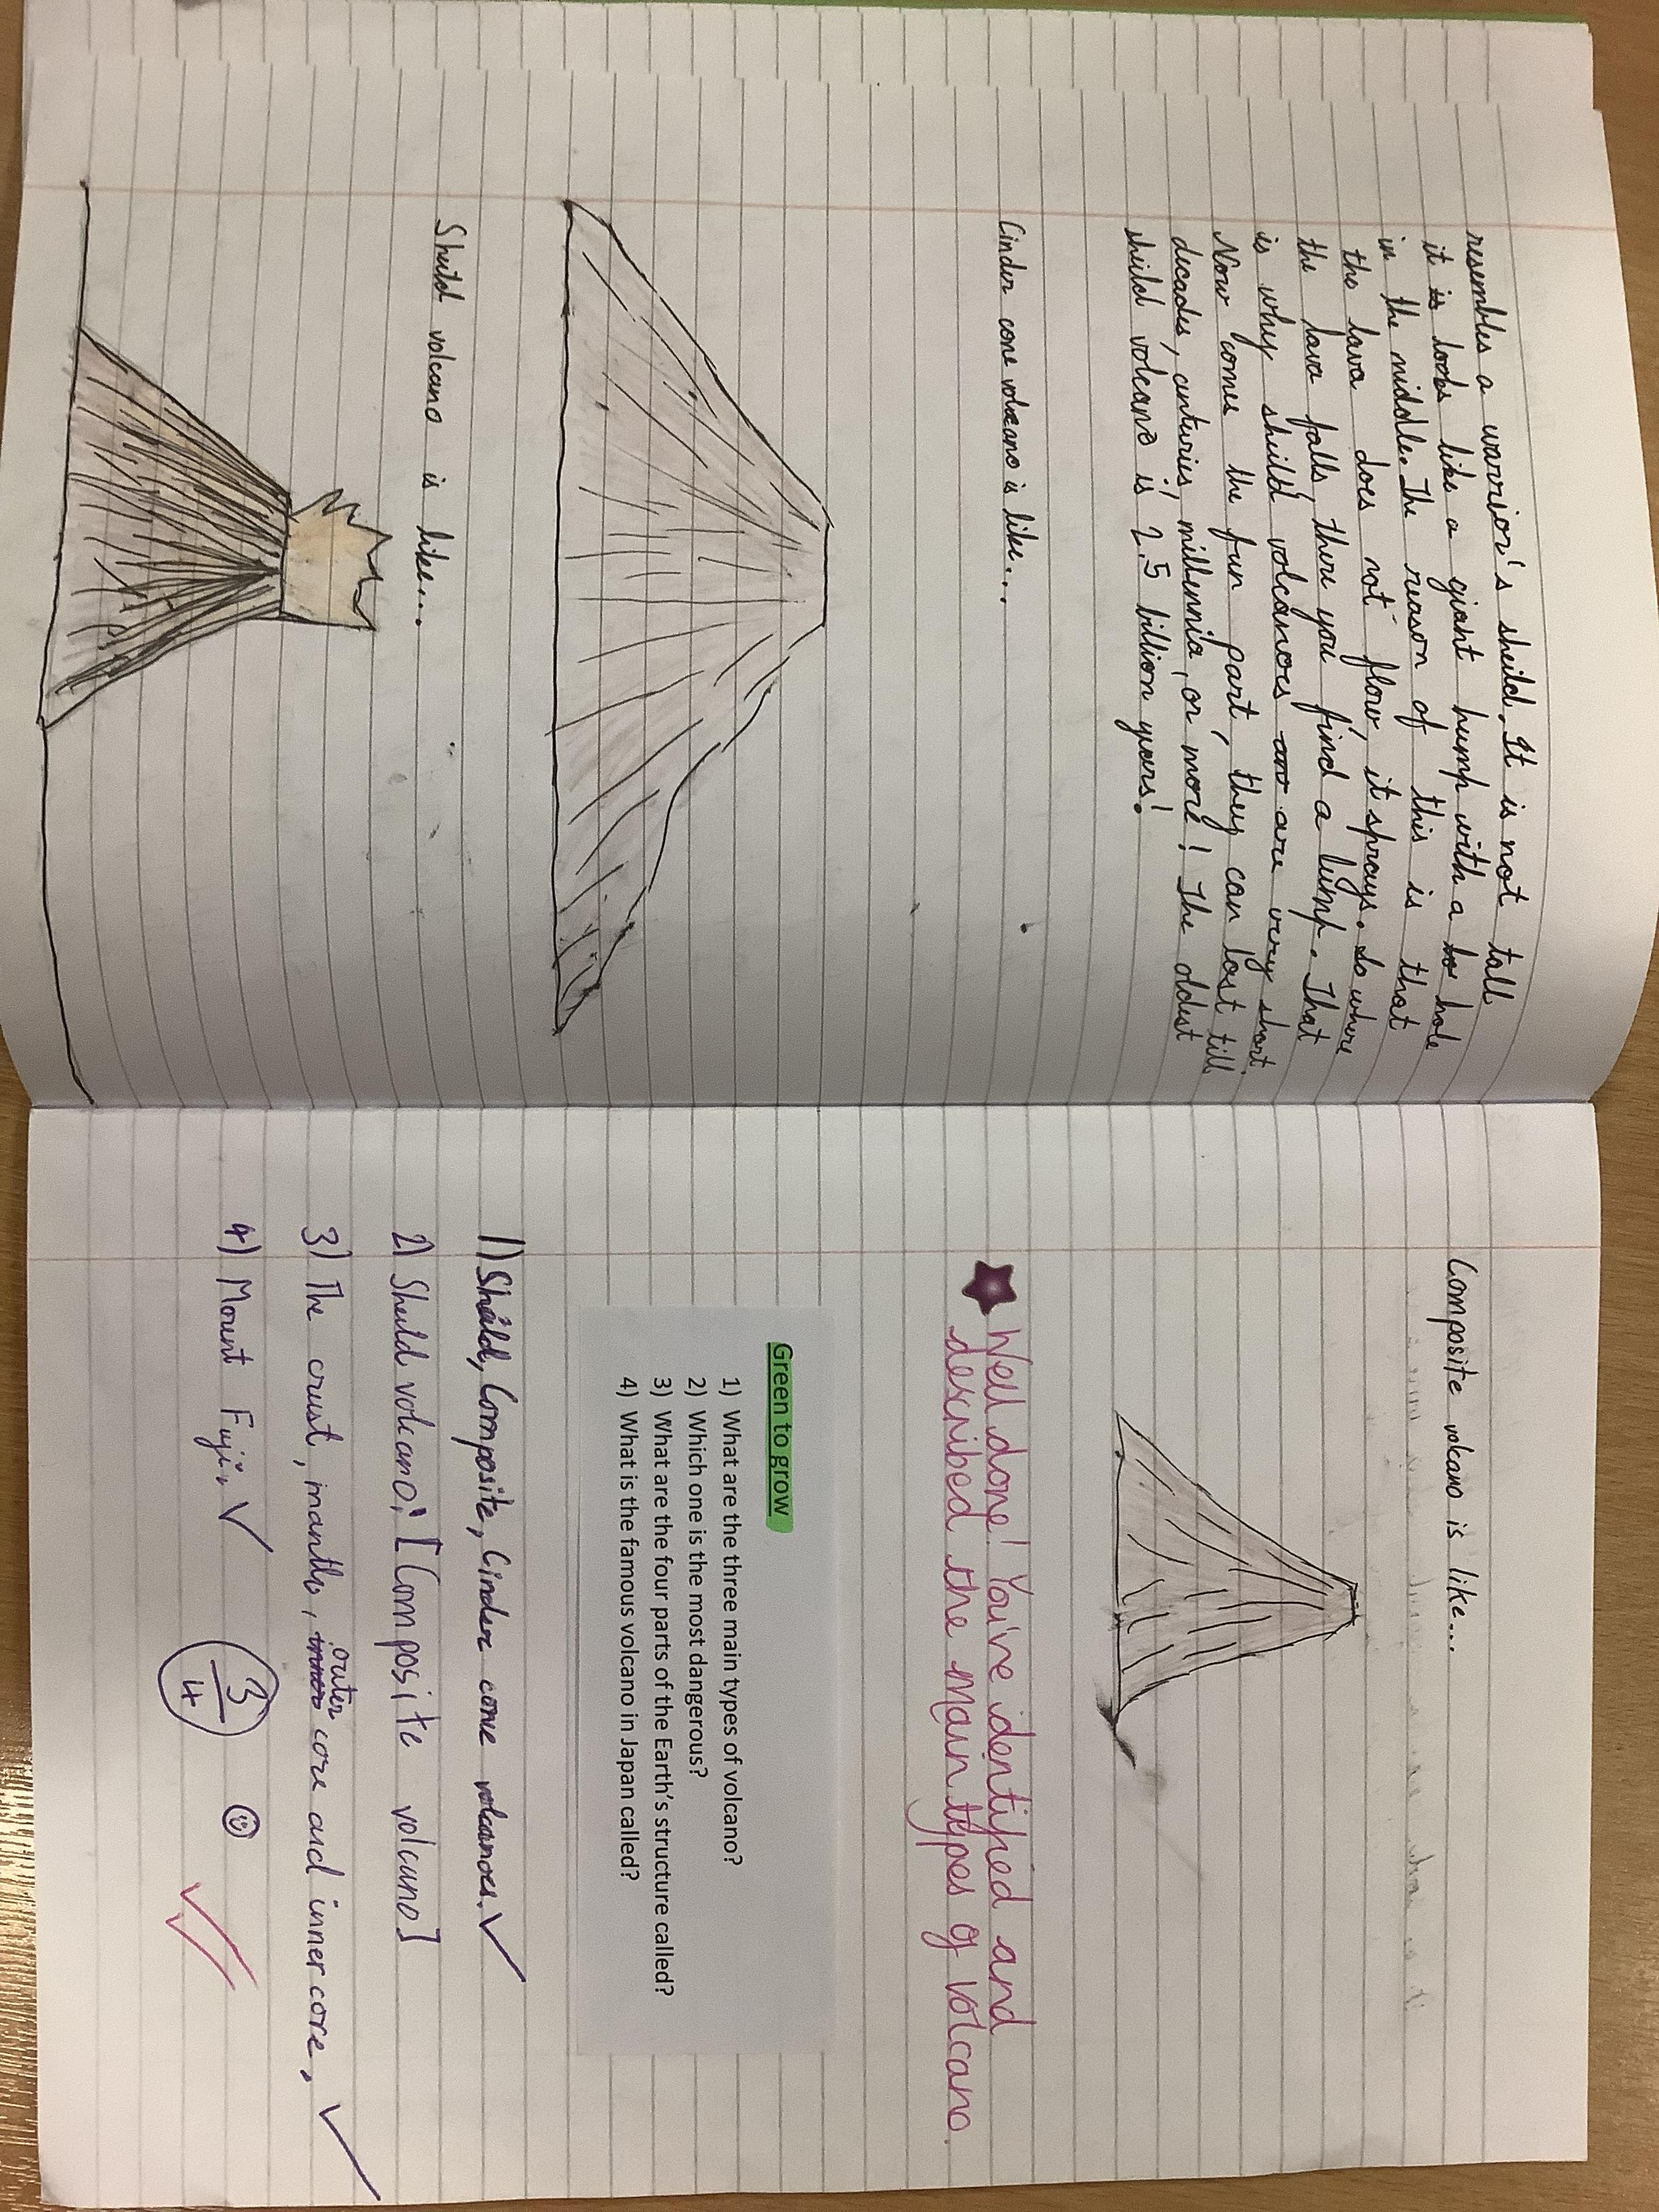 resembles a warrior's sheild. It is not tall
it is looks like a giant hump with a ho hole
in the middle. The reason of this is that
the lava does not flow, it sprays. So where
the lava falls, there you find a lump. That
is why sheild volcanoes are are very short.
Now comes the fun part, they can last till
decades, centuries, millennia, or more! The oldest
sheild volcano is 2.5 billion years!
Cinder cone volcano is like...
Sheild volcano is like...
Composite volcano is like...
Well done! You've identified and
described the main types of volcano.
Green to grow
1) What are the three main types of volcano?
2) Which one is the most dangerous?
3) What are the four parts of the Earth's structure called?
4) What is the famous volcano in Japan called?
1) Sheild, Composite, Cinder cone volcanoes. ✓
2) Sheild volcano. [Composite volcano]
3) The crust, mantle, inner outer core and inner core. ✓
4) Mount Fuji. ✓
3/4